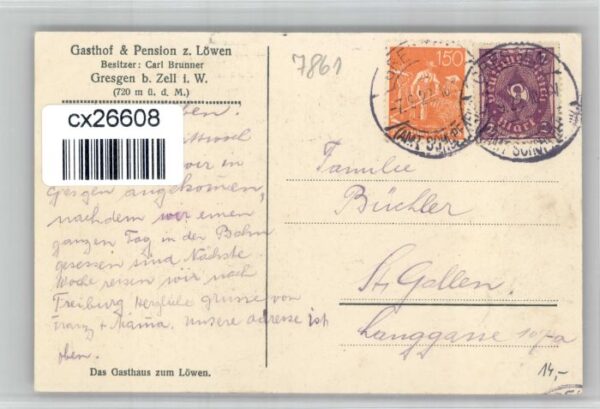 Gasthof & Pension z. Löwen
Besitzer: Carl Brunner
Gresgen b. Zell i. W.
(720 m ü. d. M.)
7861
150
cx26608
wir in
Gesgen angekommen,
nachdem wir einen
ganzen Tag in der Bahn
gesessen sind Nächste
Woche reisen wir nach
Freiburg Herzliche Grüsse von
Franz + Mama. Unsere Adresse ist
oben.
Das Gasthaus zum Löwen.
(AMT SCHOPF
Familie
Büchler
St. Gallen.
Langgasse
14,-